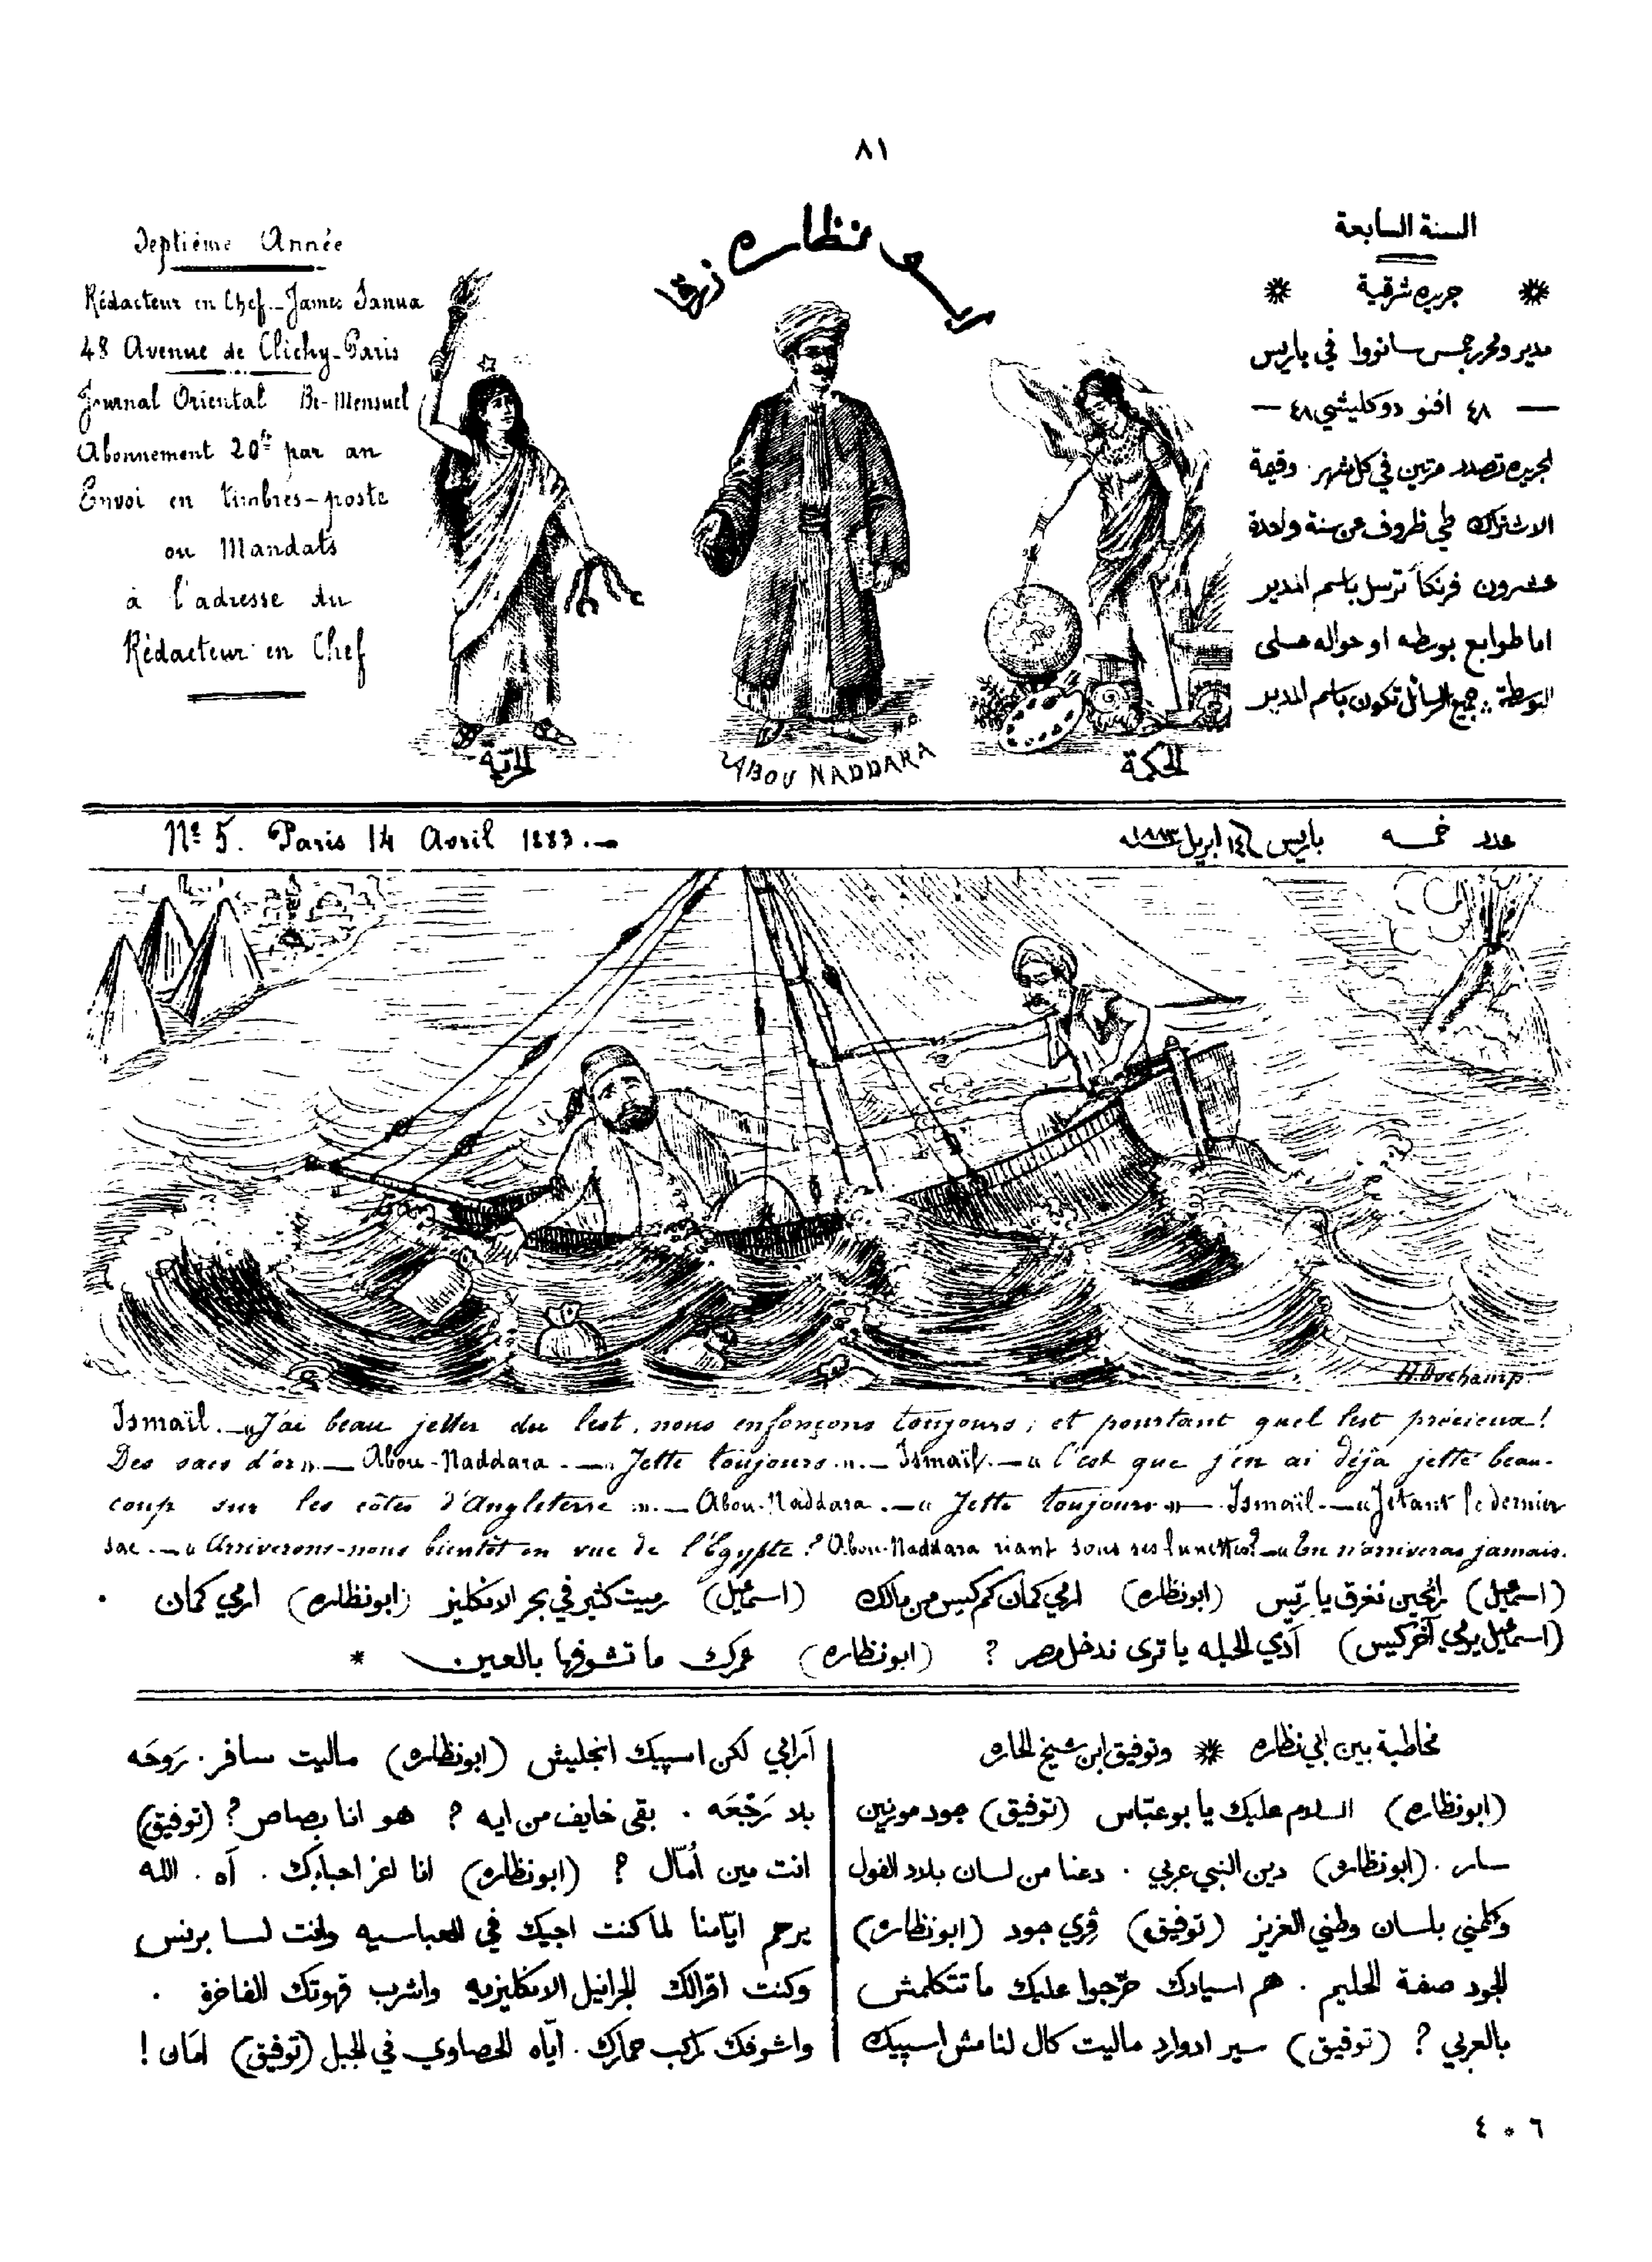 ٨١
Septième Année
Rédacteur en Chef _ James Sanua
48 Avenue de Clichy-Paris
Journal Oriental Bi-Mensuel
Abonnement 20fr par an
Envoi en timbres-poste
ou Mandats
à l'adresse du
Rédacteur en Chef
نظاره زرقا
السنة السابعة
جريده شرقية
مدير ومحرر جمس سانووا في باريس
٤٨ افنو دوكليشي ٤٨
الجريده تصدر مرتين في كل شهر. وقيمة
الاشتراك طي ظروف عن سنة واحدة
عشرون فرنكاً ترسل باسم المدير
اما طوابع بوسطه او حواله على
البوسطة جميع الرسائل تكون باسم المدير
الحرّيّة
ABOU NADDARA
الحكمة
Nº 5. Paris 14 Avril 1883.—
عدد خمسه باريس ١٤ ابريل ١٨٨٣
H. Duchamp.
Ismaïl. — «J'ai beau jetter du lest, nous enfonçons toujours; et pourtant quel lest précieux!
Des sacs d'or». — Abou-Naddara. — «Jette toujours.» — Ismaïl. — «C'est que j'en ai déjà jetté beau-
coup sur les côtes d'Angleterre.» — Abou-Naddara. — «Jette toujours» — Ismaïl. — «Jetant le dernier
sac. — «Arriverons-nous bientôt en vue de l'Égypte? Abou-Naddara riant sous ses lunettes? — «Tu n'arriveras jamais.
(اسمعيل) رايحين نغرق يا ريّس (ابونظاره) ارمي كمان كم كيس من مالك (اسمعيل) رميت كثير في بحر الانكليز (ابونظاره) ارمي كمان .
(اسمعيل يرمي آخر كيس) آدي الحيله يا ترى ندخل مصر ? (ابونظاره) عمرك ما تشوفها بالعين *
مخاطبة بين ابي نظاره * وتوفيق ابن شيخ الحاره
(ابونظاره) السلام عليك يا بوعبّاس (توفيق) جود مورنين
سار. (ابونظاره) دين النبي عربي . دعنا من لسان بلاد الفول
وكلمني بلسان وطني العزيز (توفيق) ڤري جود (ابونظاره)
الجود صفة الحليم . هم اسيادك حرّجوا عليك ما تتكلمش
بالعربي ? (توفيق) سير ادوارد ماليت كال لنا مش اسپيك
آرابي لكن اسپيك انجليش (ابونظاره) ماليت سافر. رَوحَه
بلا رَجْعَه . بقى خايف من ايه ? هو انا بصاص? (توفيق)
انت مين أُمّال ? (ابونظاره) انا اعز احبابك . آه . الله
يرحم ايّامنا لما كنت اجيك في العباسيه وانت لسا برنس
وكنت اقرالك الجرانيل الانكليزيه واشرب قهوتك الفاخرة .
واشوفك تركب حمارك. آياه الحصاوي في الجبل (توفيق) امَان!
٤ * ٦